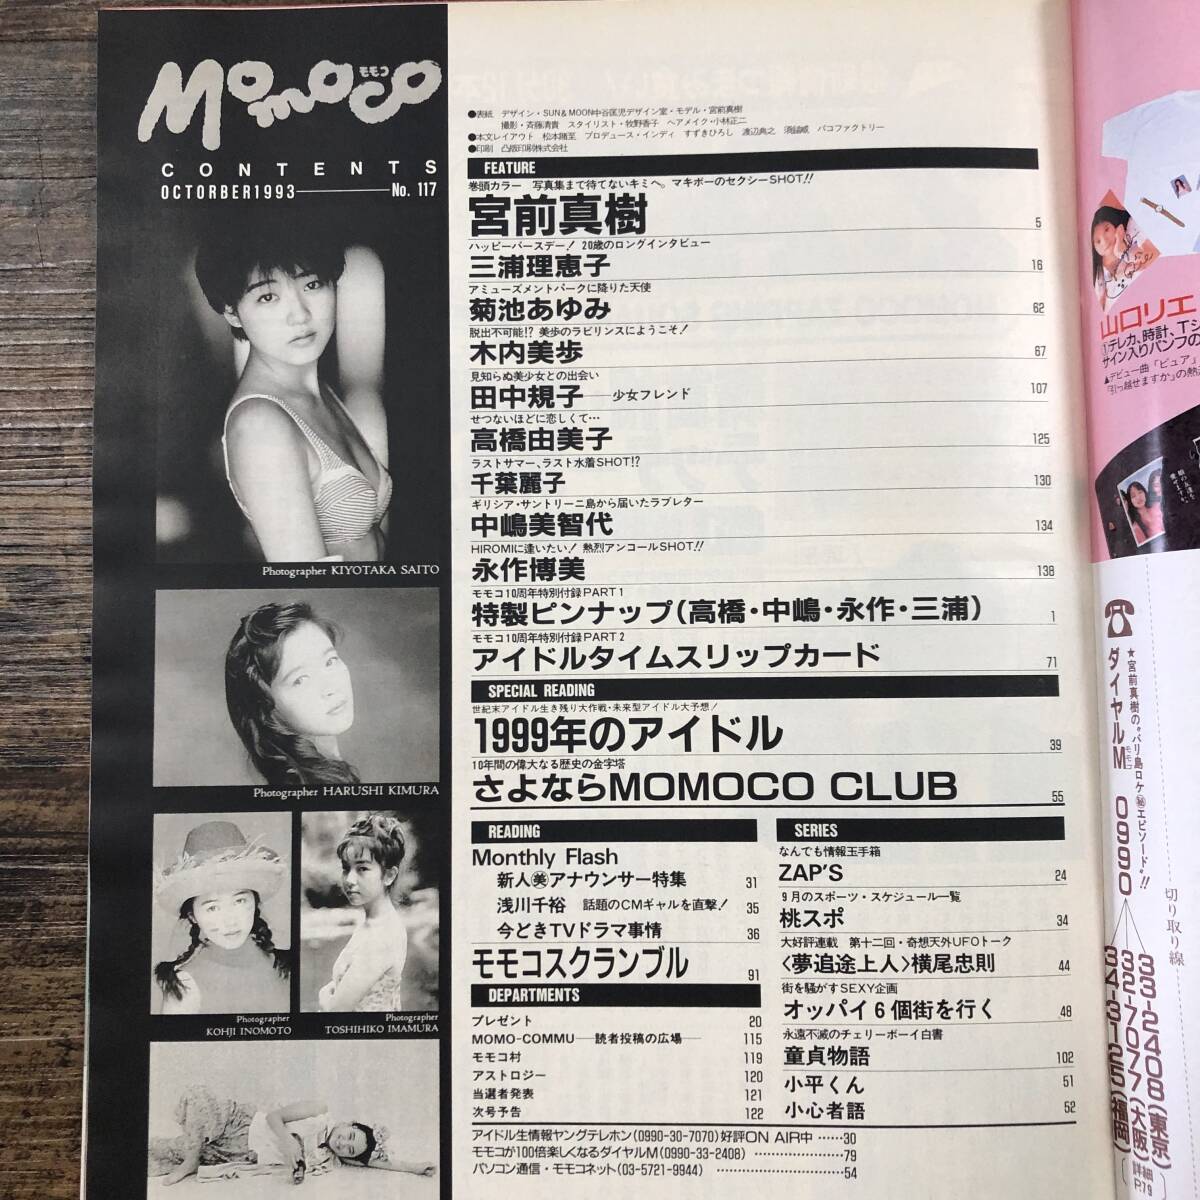 Momoco
モモコ
CONTENTS
OCTORBER1993 No. 117
Photographer KIYOTAKA SAITO
Photographer HARUSHI KIMURA
Photographer
KOHJI INOMOTO
Photographer
TOSHIHIKO IMAMURA
●表紙 デザイン・SUN&MOON中谷匡児デザイン室・モデル・宮前真樹
撮影・斉藤清貴 スタイリスト・牧野香子 ヘアメイク・小林正二
●本文レイアウト 松本隆至 プロデュース・インディ すずきひろし 渡辺典之 須鎗威 パコファクトリー
●印刷 凸版印刷株式会社
FEATURE
巻頭カラー 写真集まで待てないキミへ。マキボーのセクシーSHOT!!
宮前真樹 5
ハッピーバースデー! 20歳のロングインタビュー
三浦理恵子 16
アミューズメントパークに降りた天使
菊池あゆみ 62
脱出不可能!? 美歩のラビリンスにようこそ!
木内美歩 67
見知らぬ美少女との出会い
田中規子──少女フレンド 107
せつないほどに恋しくて…
高橋由美子 125
ラストサマー、ラスト水着SHOT!?
千葉麗子 130
ギリシア・サントリーニ島から届いたラブレター
中嶋美智代 134
HIROMIに逢いたい! 熱烈アンコールSHOT!!
永作博美 138
モモコ10周年特別付録PART 1
特製ピンナップ(高橋・中嶋・永作・三浦) 1
モモコ10周年特別付録PART 2
アイドルタイムスリップカード 71
SPECIAL READING
世紀末アイドル生き残り大作戦・未来型アイドル大予想!
1999年のアイドル 39
10年間の偉大なる歴史の金字塔
さよならMOMOCO CLUB 55
READING
Monthly Flash
新人㊤アナウンサー特集 31
浅川千裕 話題のCMギャルを直撃! 35
今どきTVドラマ事情 36
モモコスクランブル 91
DEPARTMENTS
プレゼント 20
MOMO-COMMU──読者投稿の広場── 115
モモコ村 119
アストロジー 120
当選者発表 121
次号予告 122
SERIES
なんでも情報玉手箱
ZAP'S 24
9月のスポーツ・スケジュール一覧
桃スポ 34
大好評連載 第十二回・奇想天外UFOトーク
〈夢追途上人〉横尾忠則 44
街を騒がすSEXY企画
オッパイ6個街を行く 48
永遠不滅のチェリーボーイ白書
童貞物語 102
小平くん 51
小心者語 52
アイドル生情報ヤングテレホン(0990-30-7070)好評ON AIR中……30
モモコが100倍楽しくなるダイヤルM(0990-33-2408)……79
パソコン通信・モモコネット(03-5721-9944)……54
山口リエ
①テレカ、時計、Tシ
サイン入りパンフの
▲デビュー曲「ピュア」
「引っ越せますか」の熱
☎ダイヤルM
モモコ
★宮前真樹の"バリ島ロケ㊙エピソード"!!
0990
33-2408(東京)
32-7077(大阪)
34-3125(福岡)
詳細P.79
切り取り線